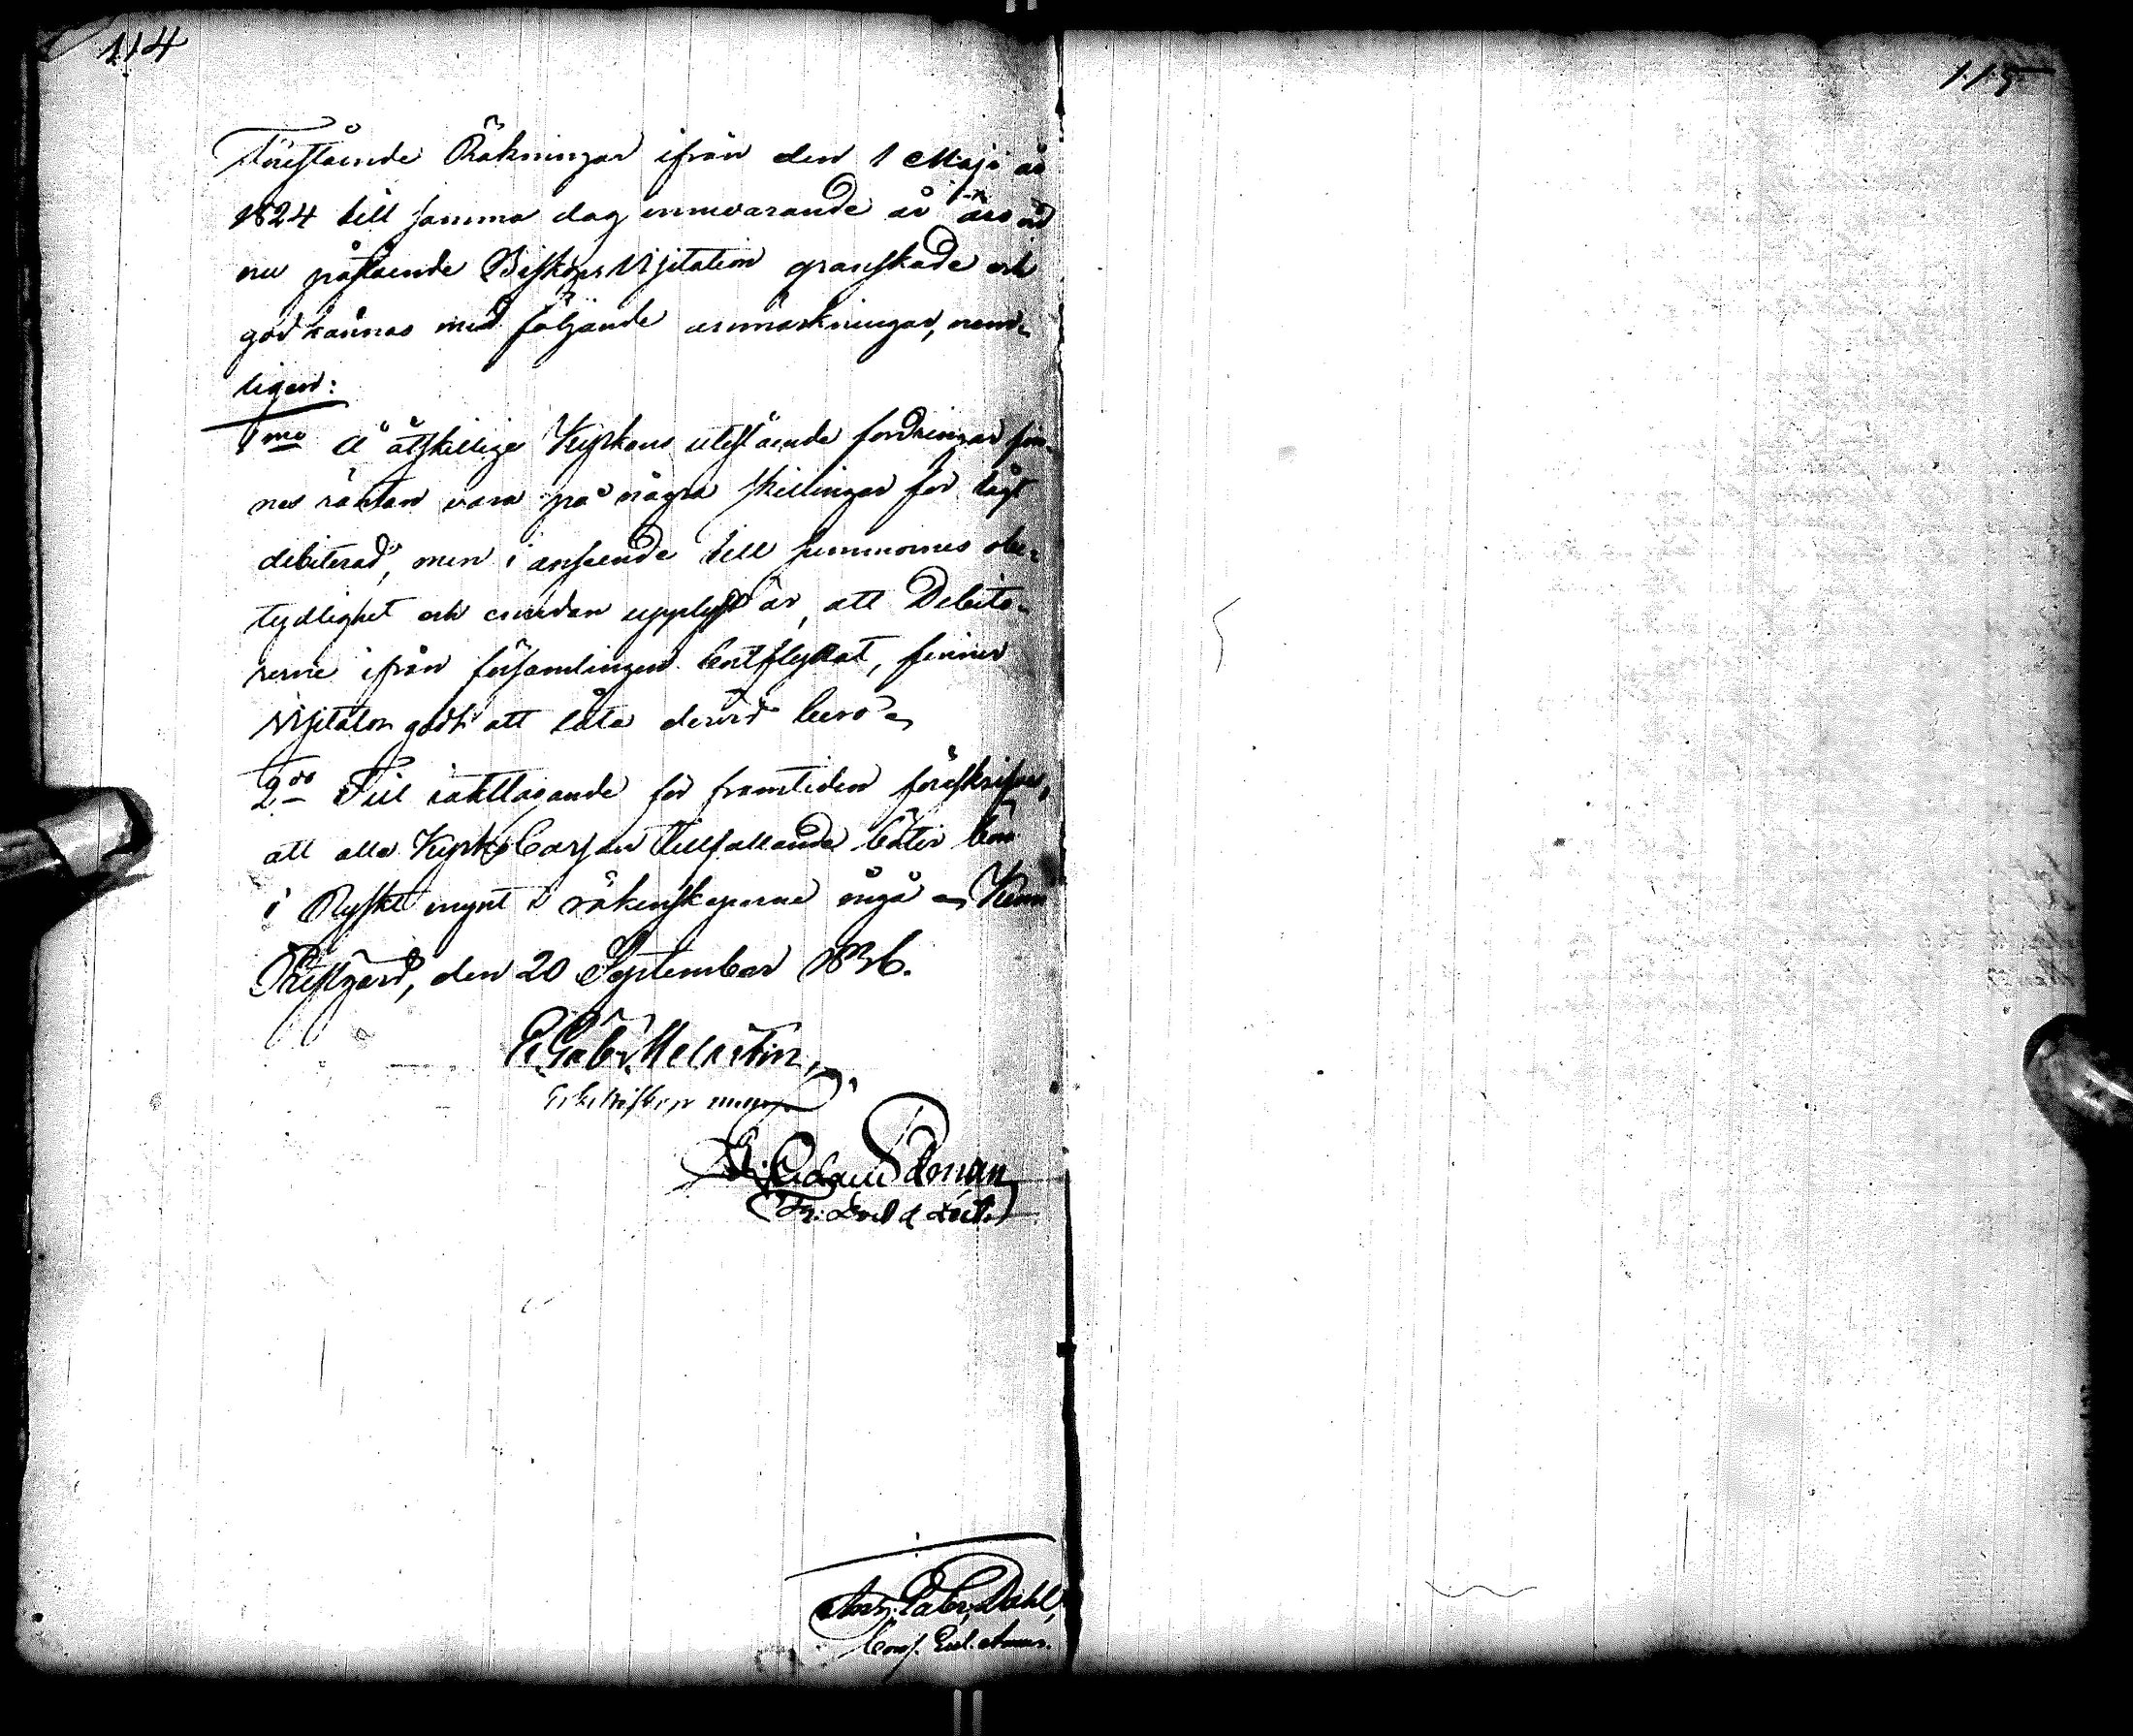 114
115
Förestående Räkningar ifrån den 1 Maji år
1824 till samma dag innevarande år äro vid
nu påstående Biskops Visitation granskade och
godkännas med följande anmärkningar, nem-
ligen:
1mo Å åtskillige Kyrkans utestående fordringar fin-
nes räntan vara på några skillingar för lågt
debiterad, men i anseende till summornes obe-
tydlighet och emedan upplyst är, att Debito-
rerne ifrån församlingen bortflyttat, finner
Visitator godt att låta dervid bero.
2do Till iakttagande för framtiden föreskrifves,
att alla Kyrko Cassan tillfallande böter böra
i Ryskt mynt i räkenskaperne ingå. Kimi
Prestgård, den 20 September 1836.
E. Gabr. Melartin,
Erkebiskop
Edman
Gabr. Dahl,
Cons. Eccl. Aman.